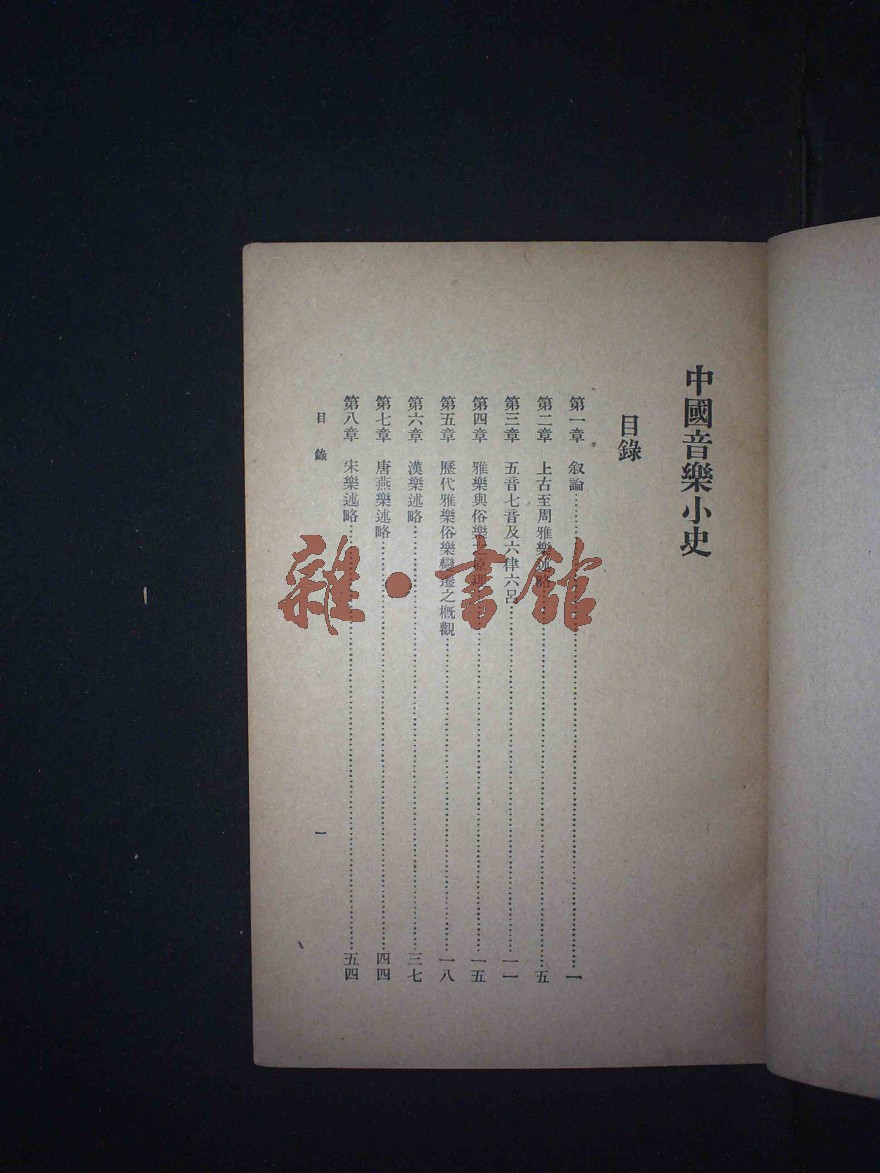 中國音樂小史
目錄
第一章 叙論⋯⋯一
第二章 上古至周雅樂述略⋯⋯五
第三章 五音七音及六律六呂⋯⋯一一
第四章 雅樂與俗樂之原理⋯⋯一五
第五章 歷代雅樂俗樂變遷之概觀⋯⋯一八
第六章 漢樂述略⋯⋯三七
第七章 唐燕樂述略⋯⋯四四
第八章 宋樂述略⋯⋯五四
目錄 一
雜·書館